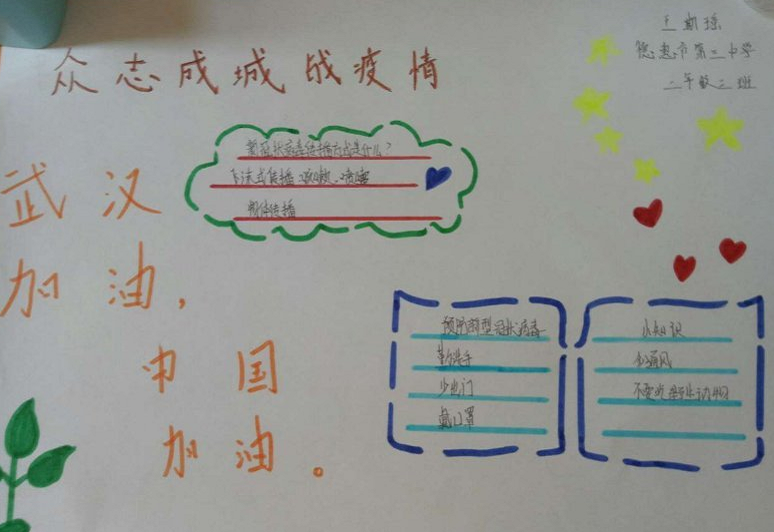 众志成城战疫情
王斯瑶
德惠市第三中学
二年级三班
武汉
加油，
中国
加油。
新冠状病毒传播方式是什么？
飞沫式传播：咳嗽、喷嚏
物体传播
预防新型冠状病毒
勤洗手
少出门
戴口罩
小知识
多通风